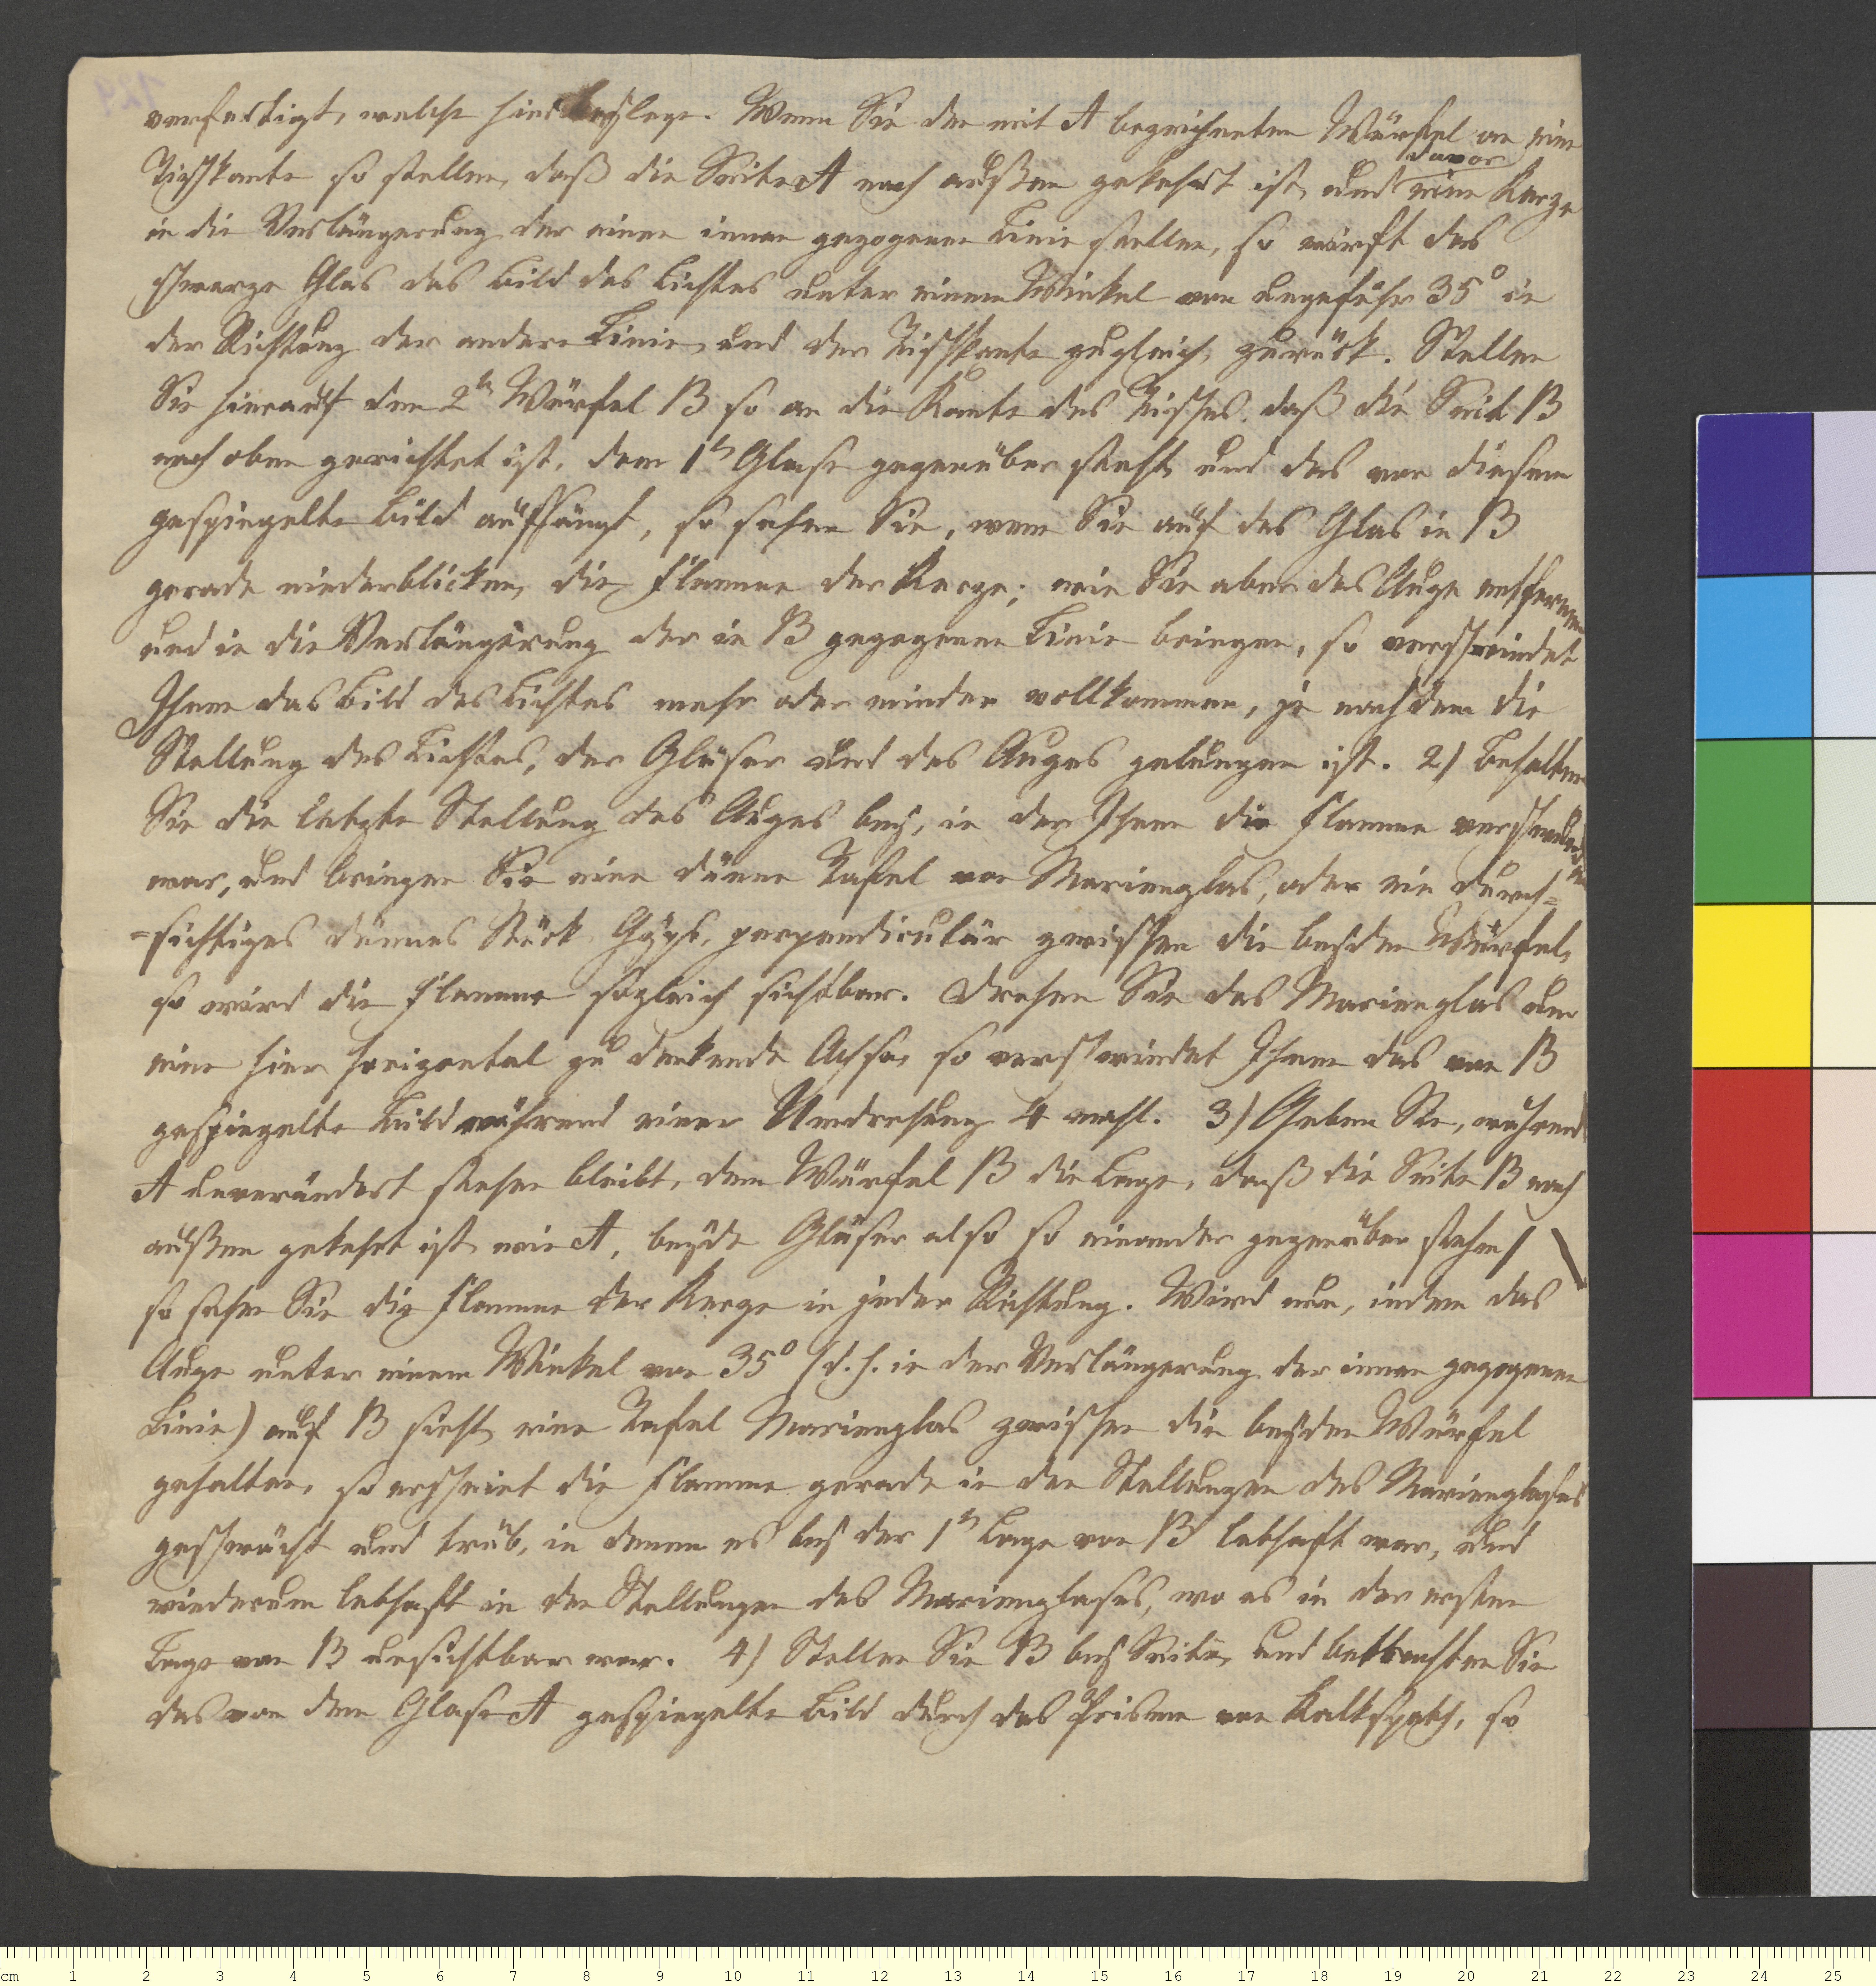 verfertigt, welche hier beylege. Wenn Sie den mit A bezeichneten Würfel an eine
Tischkante so stellen, daß die Seite A nach außen gekehrt ist, und eine Kerze
davor
in die Verlängerung der einen innen gezogenen Linie stellen, so wirft das
schwarze Glas das Bild des Lichtes unter einem Winkel von ungefähr 35° in
der Richtung der andern Linie, und der Tischkante zugleich, zurück. Stellen
Sie hierauf den 2ten Würfel B so an die Kante des Tisches, daß die Seite B
nach oben gerichtet ist, dem 1ten Glase gegenüber steht, und das von diesem
gespiegelte Bild auffängt, so sehen Sie, wenn Sie auf das Glas in B
gerade niederblicken, die Flamme der Kerze; wie Sie aber das Auge entfernen
und in die Verlängerung der in B gezogenen Linie bringen, so verschwindet
Ihnen das Bild des Lichtes mehr oder minder vollkommen, je nachdem die
Stellung des Lichtes, der Gläser und des Auges gelungen ist. 2) Behalten
Sie die letzte Stellung des Auges bey, in der Ihnen die Flamme verschwunden
war, und bringen Sie eine dünne Tafel von Marienglas, oder ein durch-
=sichtiges dünnes Stück Gyps, perpendiculär zwischen die beyden Würfel,
so wird die Flamme sogleich sichtbar. Drehen Sie das Marienglas um
eine hier horizontal zu denkende Achse, so verschwindet Ihnen das von B
gespiegelte Bild während einer Umdrehung 4 mahl. 3) Geben Sie, während
A unverändert stehen bleibt, dem Würfel B die Lage, daß die Seite B nach
außen gekehrt ist wie A, beyde Gläser also so einander gegenüber stehen / \
so sehen Sie die Flamme der Kerze in jeder Richtung. Wird nun, indem das
Auge unter einem Winkel von 35° (d. h. in der Verlängerung der innen gezogenen
Linie) auf B sieht, eine Tafel Marienglas zwischen die beyden Würfel
gehalten, so erscheint die Flamme gerade in den Stellungen des Marienglases
geschwächt und trüb, in denen es bey der 1ten Lage von B lebhaft war, und
wiederum lebhaft in den Stellungen des Marienglases, wo es in der ersten
Lage von B unsichtbar war. 4) Stellen Sie B bey Seite, und betrachten Sie
das von dem Glase A gespiegelte Bild durch das Prisma von Kalkspath, so